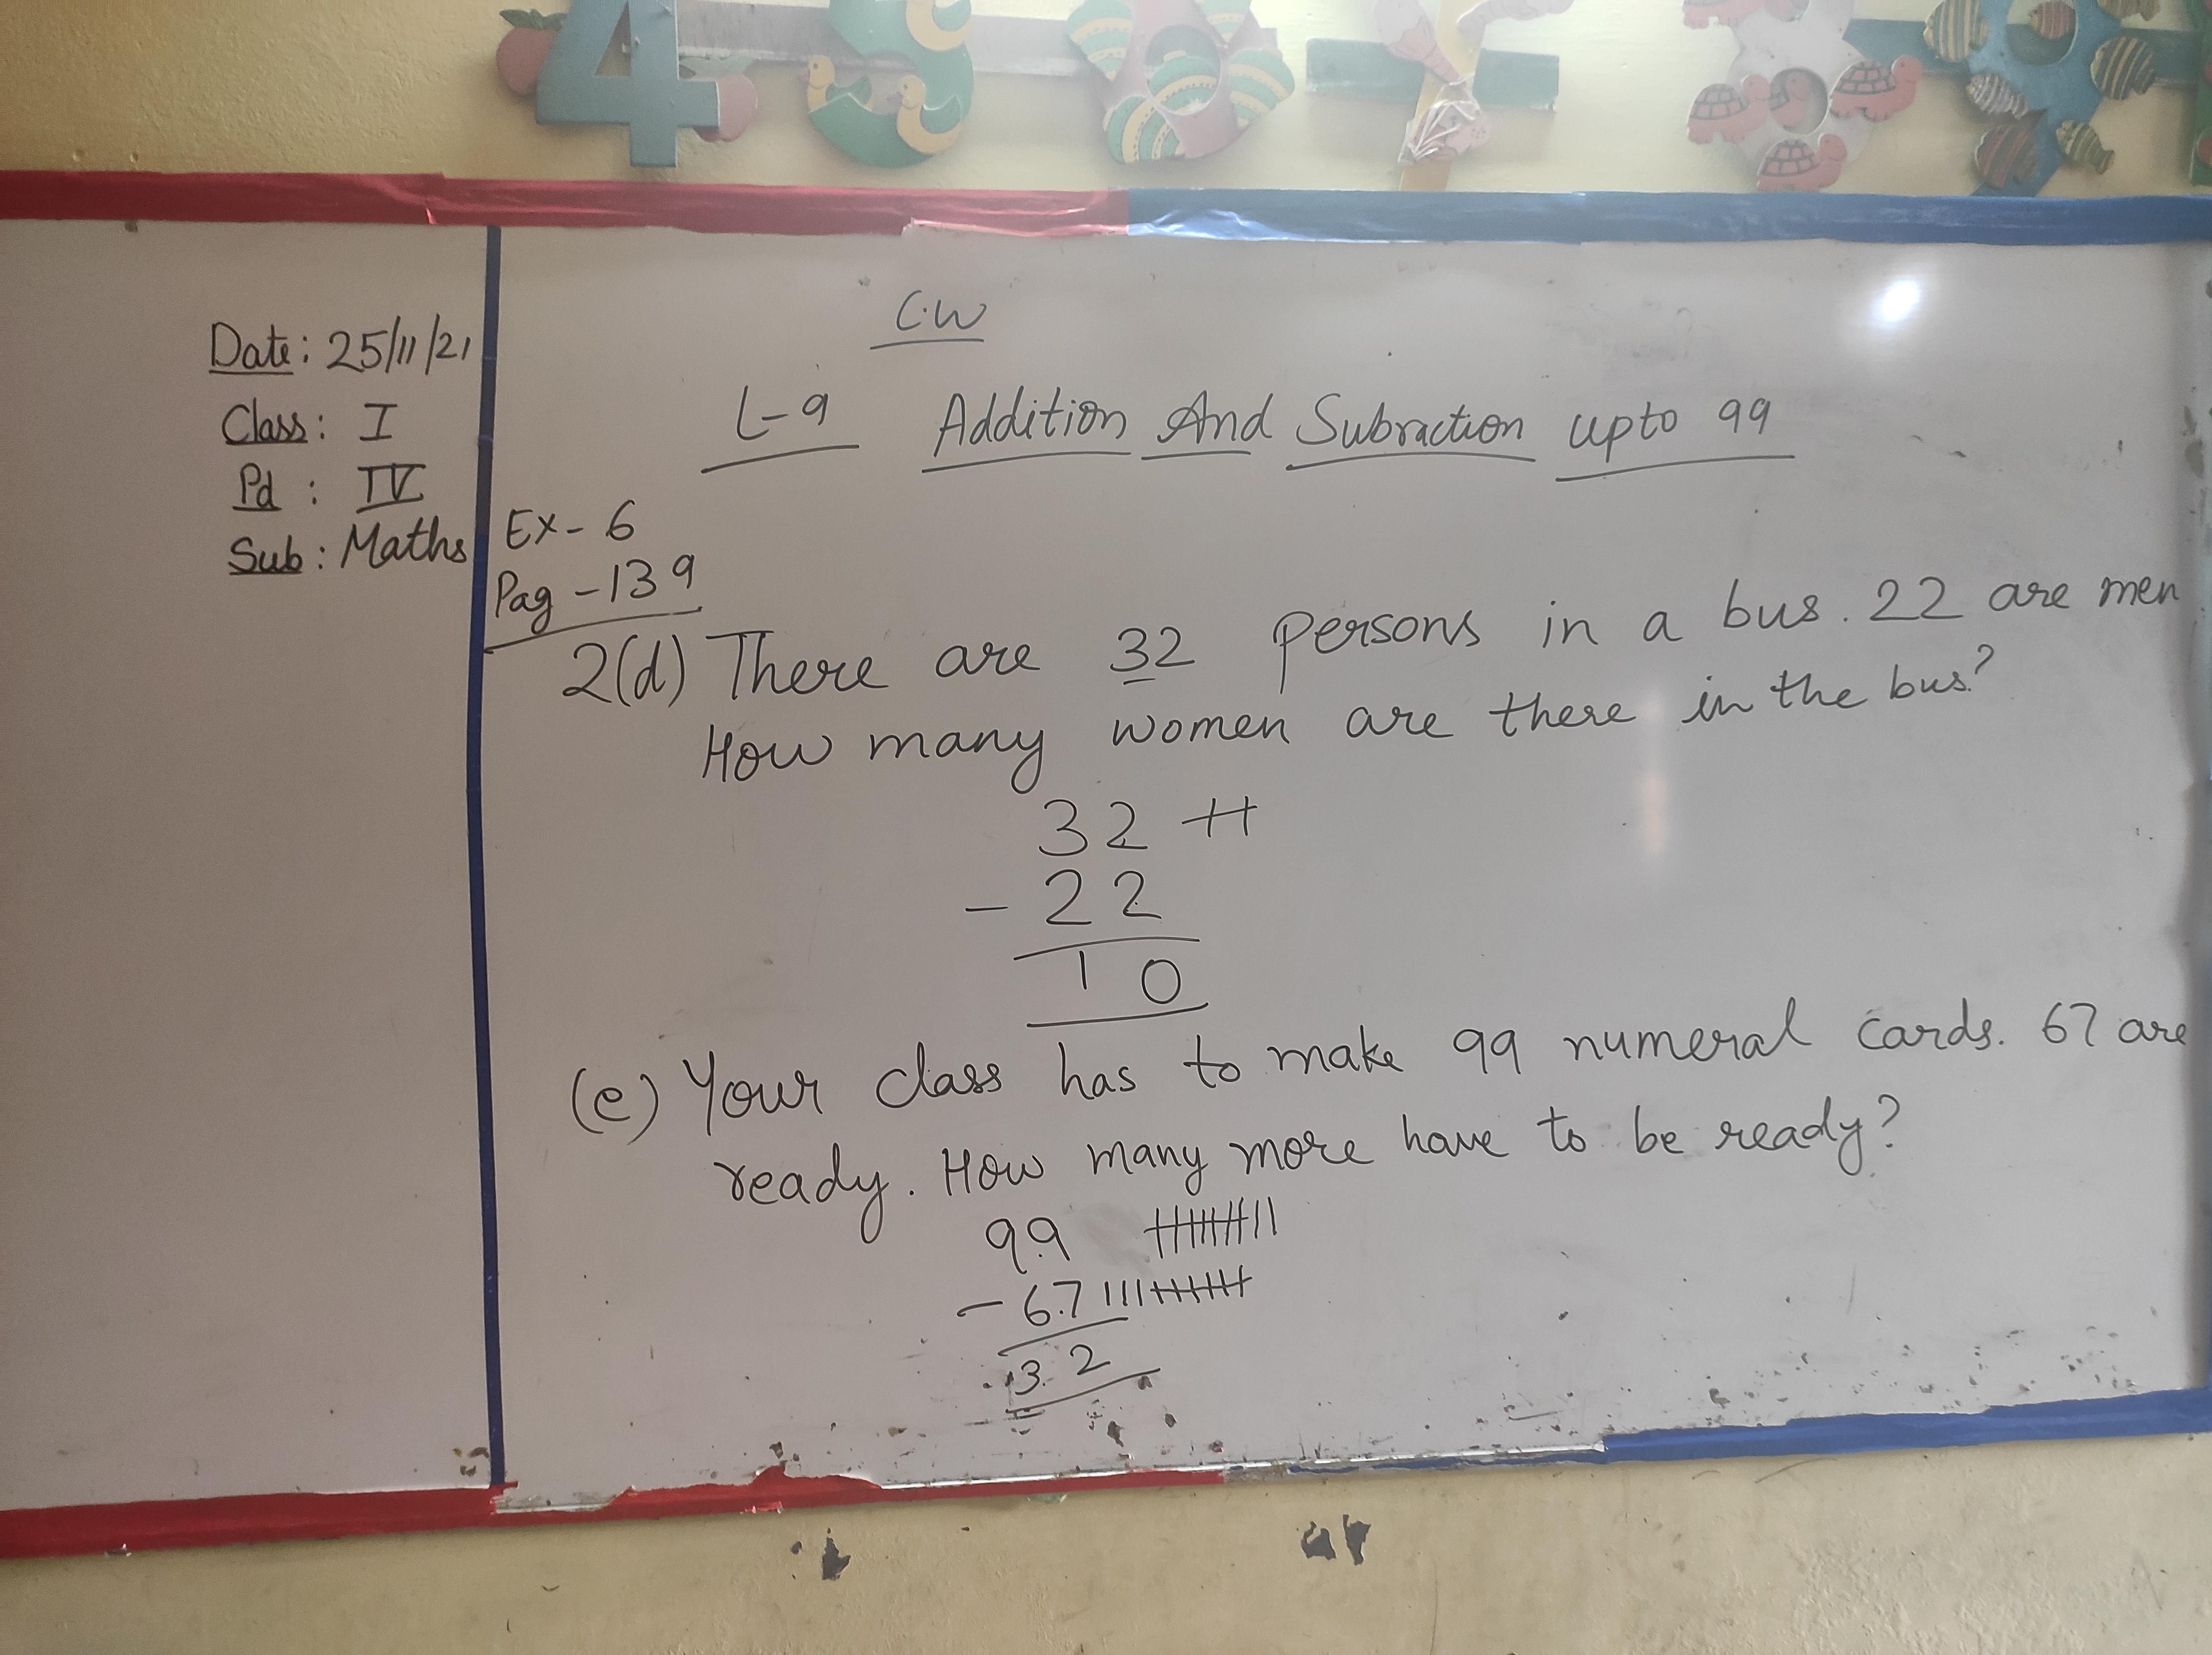 4 5 6 7 8 9
C.W
Date: 25/11/21
Class: I
Pd : IV
Sub: Maths
L-9 Addition And Subraction upto 99
Ex- 6
Pag -139
2(d) There are 32 persons in a bus. 22 are men
How many women are there in the bus?
32
- 22
10
(e) Your class has to make 99 numeral cards. 67 are
ready. How many more have to be ready?
99
- 67
32